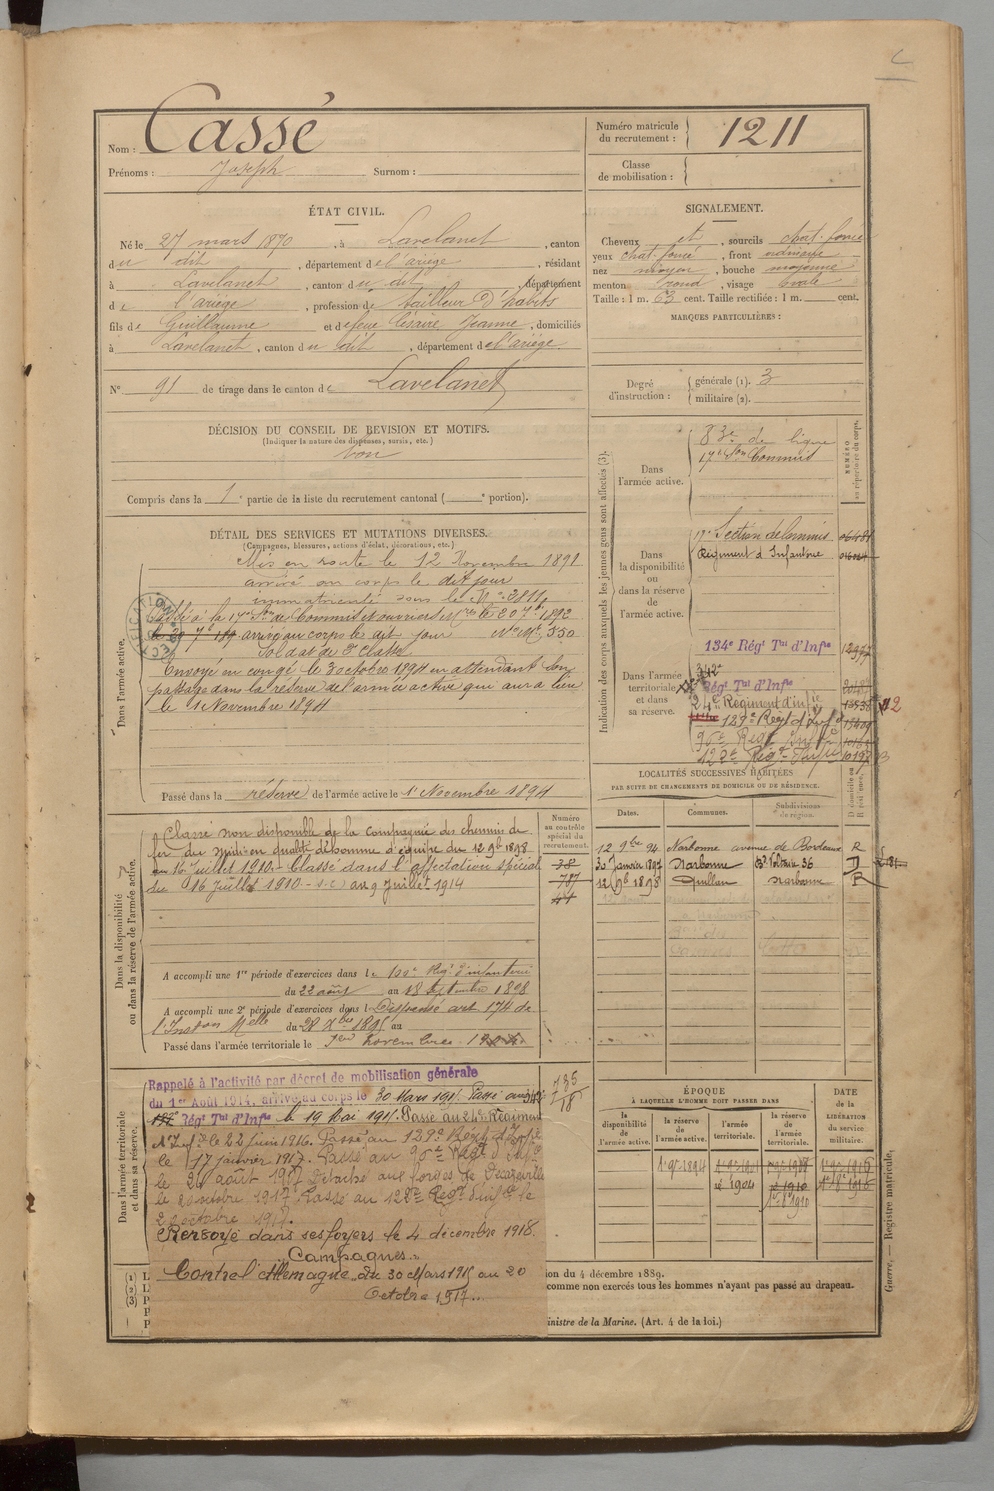 C
Nom : Cassé
Prénoms : Joseph Surnom :
Numéro matricule du recrutement : 1211
Classe de mobilisation :
ÉTAT CIVIL.
Né le 27 mars 1870, à Lavelanet, canton
du dit, département de l'ariège, résidant
à Lavelanet, canton du dit, département
de l'ariège, profession de tailleur d'habits
fils de Guillaume et de feue Césaire Jeanne, domiciliés
à Lavelanet, canton du dit, département de l'ariège.
N° 91 de tirage dans le canton de Lavelanet
SIGNALEMENT.
Cheveux et, sourcils chat. foncé
yeux chat. foncé, front ordinaire
nez moyen, bouche moyenne
menton rond, visage ovale
Taille : 1 m. 63 cent. Taille rectifiée : 1 m. cent.
MARQUES PARTICULIÈRES :
Degré d'instruction : générale (1). 3
militaire (2).
DÉCISION DU CONSEIL DE REVISION ET MOTIFS.
(Indiquer la nature des dispenses, sursis, etc.)
bon
Compris dans la 1e partie de la liste du recrutement cantonal ( e portion).
DÉTAIL DES SERVICES ET MUTATIONS DIVERSES.
(Campagnes, blessures, actions d'éclat, décorations, etc.)
Dans l'armée active.
Mis en route le 12 Novembre 1891
arrivé au corps le dit jour
immatriculé sous le N° 3811
Passé à la 17e Son de Commis et ouvriers le 20 7bre 1892
arrivé au corps le dit jour N° Mle 550
Soldat de 2e classe
Envoyé en congé le 3 octobre 1894 en attendant son
passage dans la réserve de l'armée active qui aura lieu
le 1 Novembre 1894
Passé dans la réserve de l'armée active le 1 Novembre 1894
Indication des corps auxquels les jeunes gens sont affectés (3).
NUMÉRO au répertoire du corps.
Dans l'armée active.
83e de ligne
17e Son Commis
Dans la disponibilité ou dans la réserve de l'armée active.
17e Section de Commis
Régiment d'Infanterie
Dans l'armée territoriale et dans sa réserve.
134e Régt Tal d'Infie
342e
Régt Tal d'Infie
24e Régiment d'infie
129e Régt d'Inf
96e Régt Inf
122e Régt Infie
LOCALITÉS SUCCESSIVES HABITÉES
PAR SUITE DE CHANGEMENTS DE DOMICILE OU DE RÉSIDENCE.
Dates. Communes. Subdivisions de région. D domicile ou R résidence.
12 9bre 94. Narbonne avenue de Bordeaux R
30 Janvier 1897 Narbonne Bd Voltaire 36 D
12 9b 1898 Quillan Narbonne R
Dans la disponibilité ou dans la réserve de l'armée active.
Numéro au contrôle spécial du recrutement.
38
787
Classé non disponible de la compagnie des chemins de
fer du midi en qualité d'homme d'équipe du 12 9b 1898
au 16 Juillet 1910. Classé dans l'affectation spéciale
du 16 Juillet 1910 au 9 Juillet 1914
A accompli une 1re période d'exercices dans le 100e Régt d'infanterie
du 22 août au 18 Septembre 1898
A accompli une 2e période d'exercices dans l Dispensé art 174 de
l'Inston Melle du 28 Xbre 1895 au
Passé dans l'armée territoriale le 1er Novembre 1904
Dans l'armée territoriale et dans sa réserve.
Rappelé à l'activité par décret de mobilisation générale
du 1er Août 1914, arrivé au corps le 30 Mars 1915 Passé au
Régt Tal d'Infie le 19 Mai 1915. Passé au 24e Régiment
d'Infie le 22 juin 1916. Passé au 129e Régt d'Infie
le 17 janvier 1917. Passé au 96e Régt d'Infie
le 20 août 1917 Détaché aux forges de Decazeville
le 20 octobre 1917. Passé au 122e Régt d'infie le
20 octobre 1917.
Renvoyé dans ses foyers le 4 décembre 1918.
Campagnes.
Contre l'Allemagne, du 30 Mars 1915 au 20
Octobre 1917.
ÉPOQUE
À LAQUELLE L'HOMME DOIT PASSER DANS
la disponibilité de l'armée active. la réserve de l'armée active. l'armée territoriale. la réserve de l'armée territoriale.
DATE de la LIBÉRATION du service militaire.
1er 9bre 1894
1904
1910
ion du 4 décembre 1889.
comme non exercés tous les hommes n'ayant pas passé au drapeau.
inistre de la Marine. (Art. 4 de la loi.)
(1) L
(2) L
(3) P
Guerre. — Registre matricule.